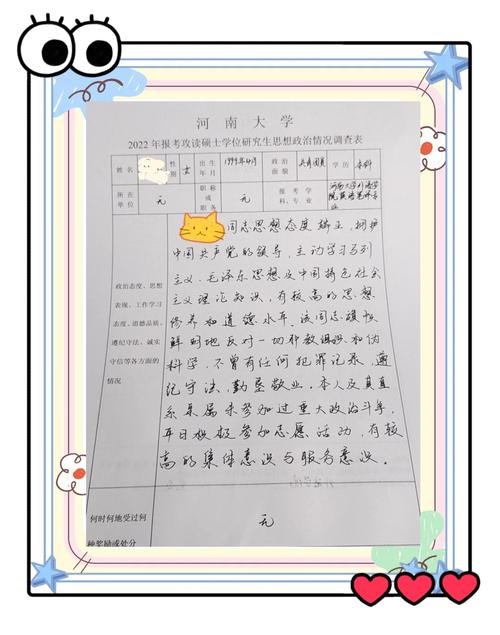 河南大学
2022年报考攻读硕士学位研究生思想政治情况调查表
姓名 性别 女 出生年月 1999年4月 政治面貌 共青团员 学历 本科
所在单位 无 职称或职务 无 报考学科、专业 河南大学外语学院英语笔译专业
政治态度、思想表现、工作学习态度、道德品质、遵纪守法、诚实守信等各方面的情况
同志思想态度端正,拥护
中国共产党的领导,主动学习马列
主义、毛泽东思想及中国特色社会
主义理论知识,有较高的思想
修养和道德水平。该同志旗帜
鲜明地反对一切邪教组织和伪
科学,不曾有任何犯罪记录,遵
纪守法,勤恳敬业。本人及其直
系亲属未参加过重大政治斗争,
平日积极参加志愿活动,有较
高的集体意识与服务意识。
何时何地受过何
种奖励或处分
无